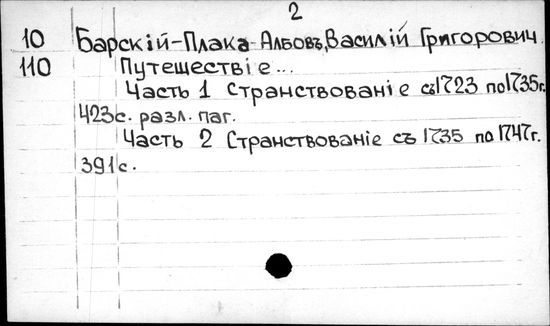 2
10 Барскій-Плака-Албовъ, Василій Григорович
110 Путешествіе...
Часть 1 Странствованіе съ 1723 по 1735г.
423с. разл. паг.
Часть 2 Странствованіе съ 1735 по 1747г.
391с.